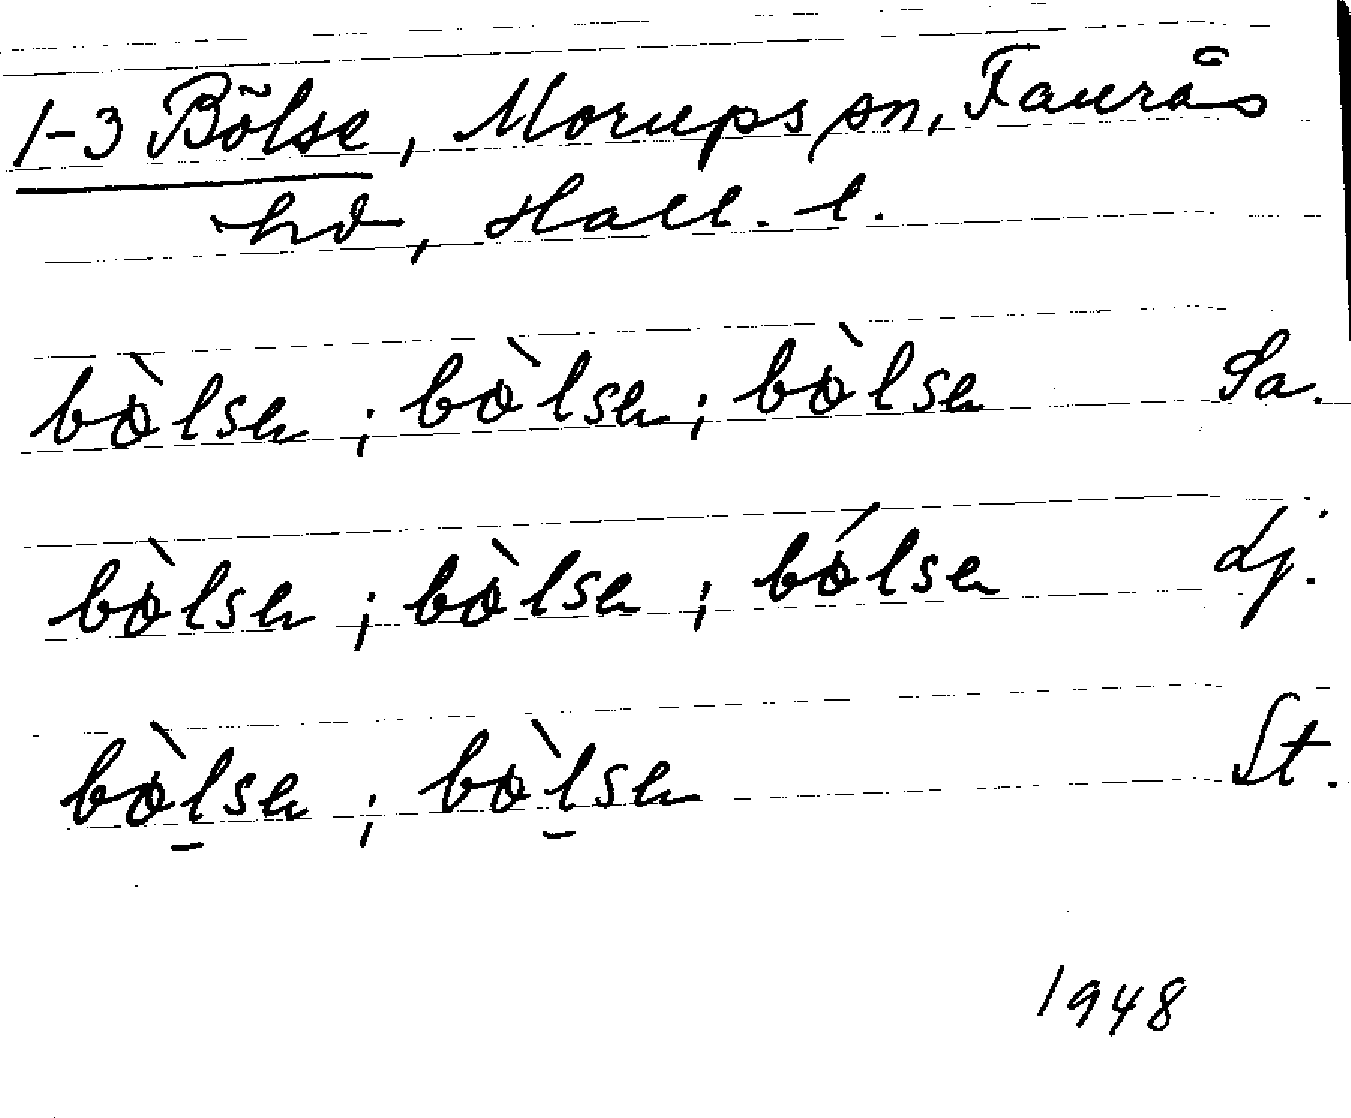 1-3 Bölse, Morups sn, Faurås
hd, Hall. l.
bòlsen ; bòlsen ; bòlsen Sa.
bòlsen ; bòlsen ; bólsen Lj.
bòlsen ; bòlsen St.
1948